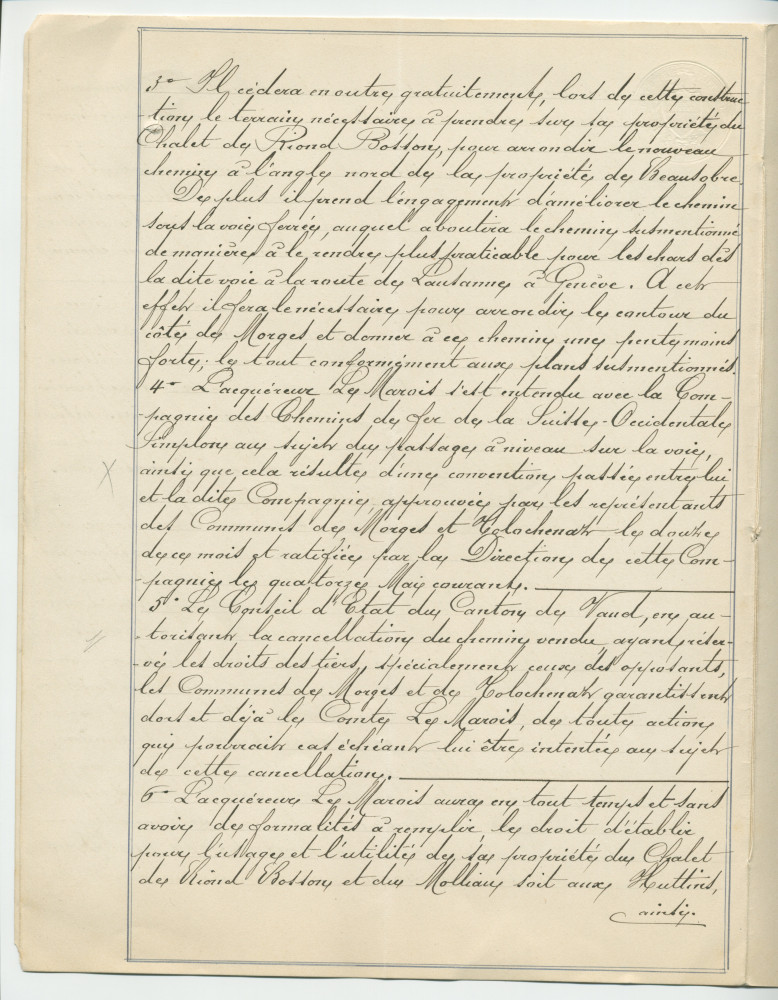 3° Il cèdera en outre gratuitement, lors de cette construc
-tion, le terrain nécessaire à prendre sur sa propriété du
Chalet de Riond Bosson, pour arrondir le nouveau
chemin à l'angle nord de la propriété de Beausobre.
De plus il prend l'engagement d'améliorer le chemin
sous la voie ferrée, auquel aboutira le chemin susmentionné
de manière à le rendre plus praticable pour les chars dès
la dite voie à la route de Lausanne à Genève. A cet
effet il fera le nécessaire pour arrondir le contour du
côté de Morges et donner à ce chemin une pente moins
forte; le tout conformément aux plans susmentionnés.
4° L'acquéreur Le Marois s'est entendu avec la Com-
-pagnie des Chemins de fer de la Suisse-Occidentale
Simplon au sujet du passage à niveau sur la voie,
ainsi que cela résulte d'une convention passée entre lui
et la dite Compagnie, approuvée par les représentants
des Communes de Morges et Tolochenaz le douze
de ce mois et ratifiée par la Direction de cette Com-
-pagnie le quatorze Mai courant.
5° Le Conseil d'Etat du Canton de Vaud, en au-
-torisant la cancellation du chemin vendu, ayant réser-
-vé les droits des tiers, spécialement ceux des opposants,
les Communes de Morges et de Tolochenaz garantissent
dors et déjà le Comte Le Marois, de toute action
qui pourrait cas échéant lui être intentée au sujet
de cette cancellation.
6° L'acquéreur Le Marois aura en tout temps et sans
avoir de formalités à remplir, le droit d'établir
pour l'usage et l'utilité de sa propriété du Chalet
de Riond Bosson et du Molliau soit aux Huttins,
ainsi.